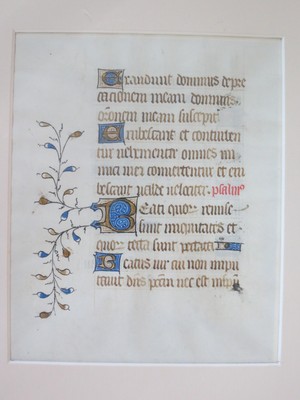 Exaudiuit dominus depre
cationem meam dominus
oronem meam suscepit
Erubescant et conturben
tur uehementer omnes ini
mici mei conuertentur et eru
bescant ualde uelociter. psalmꝰ
Beati quoꝝ remisse
sunt iniquitates et
quoꝝ tecta sunt peccata
Beatus uir cui non impu
tauit dns pctm nec est in spu